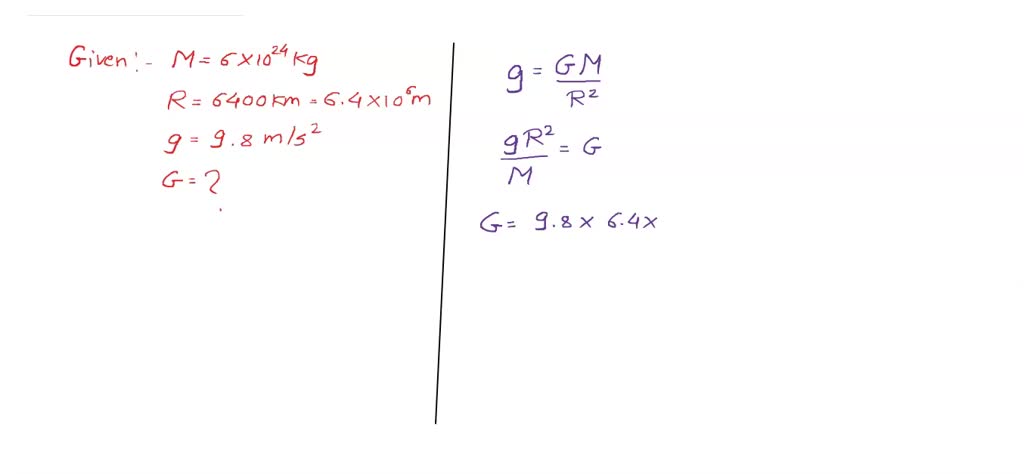 Given:- M = 6×10²⁴ kg
R = 6400 km = 6.4×10⁶ m
g = 9.8 m/s²
G = ?
g = GM/R²
gR²/M = G
G = 9.8 × 6.4 ×